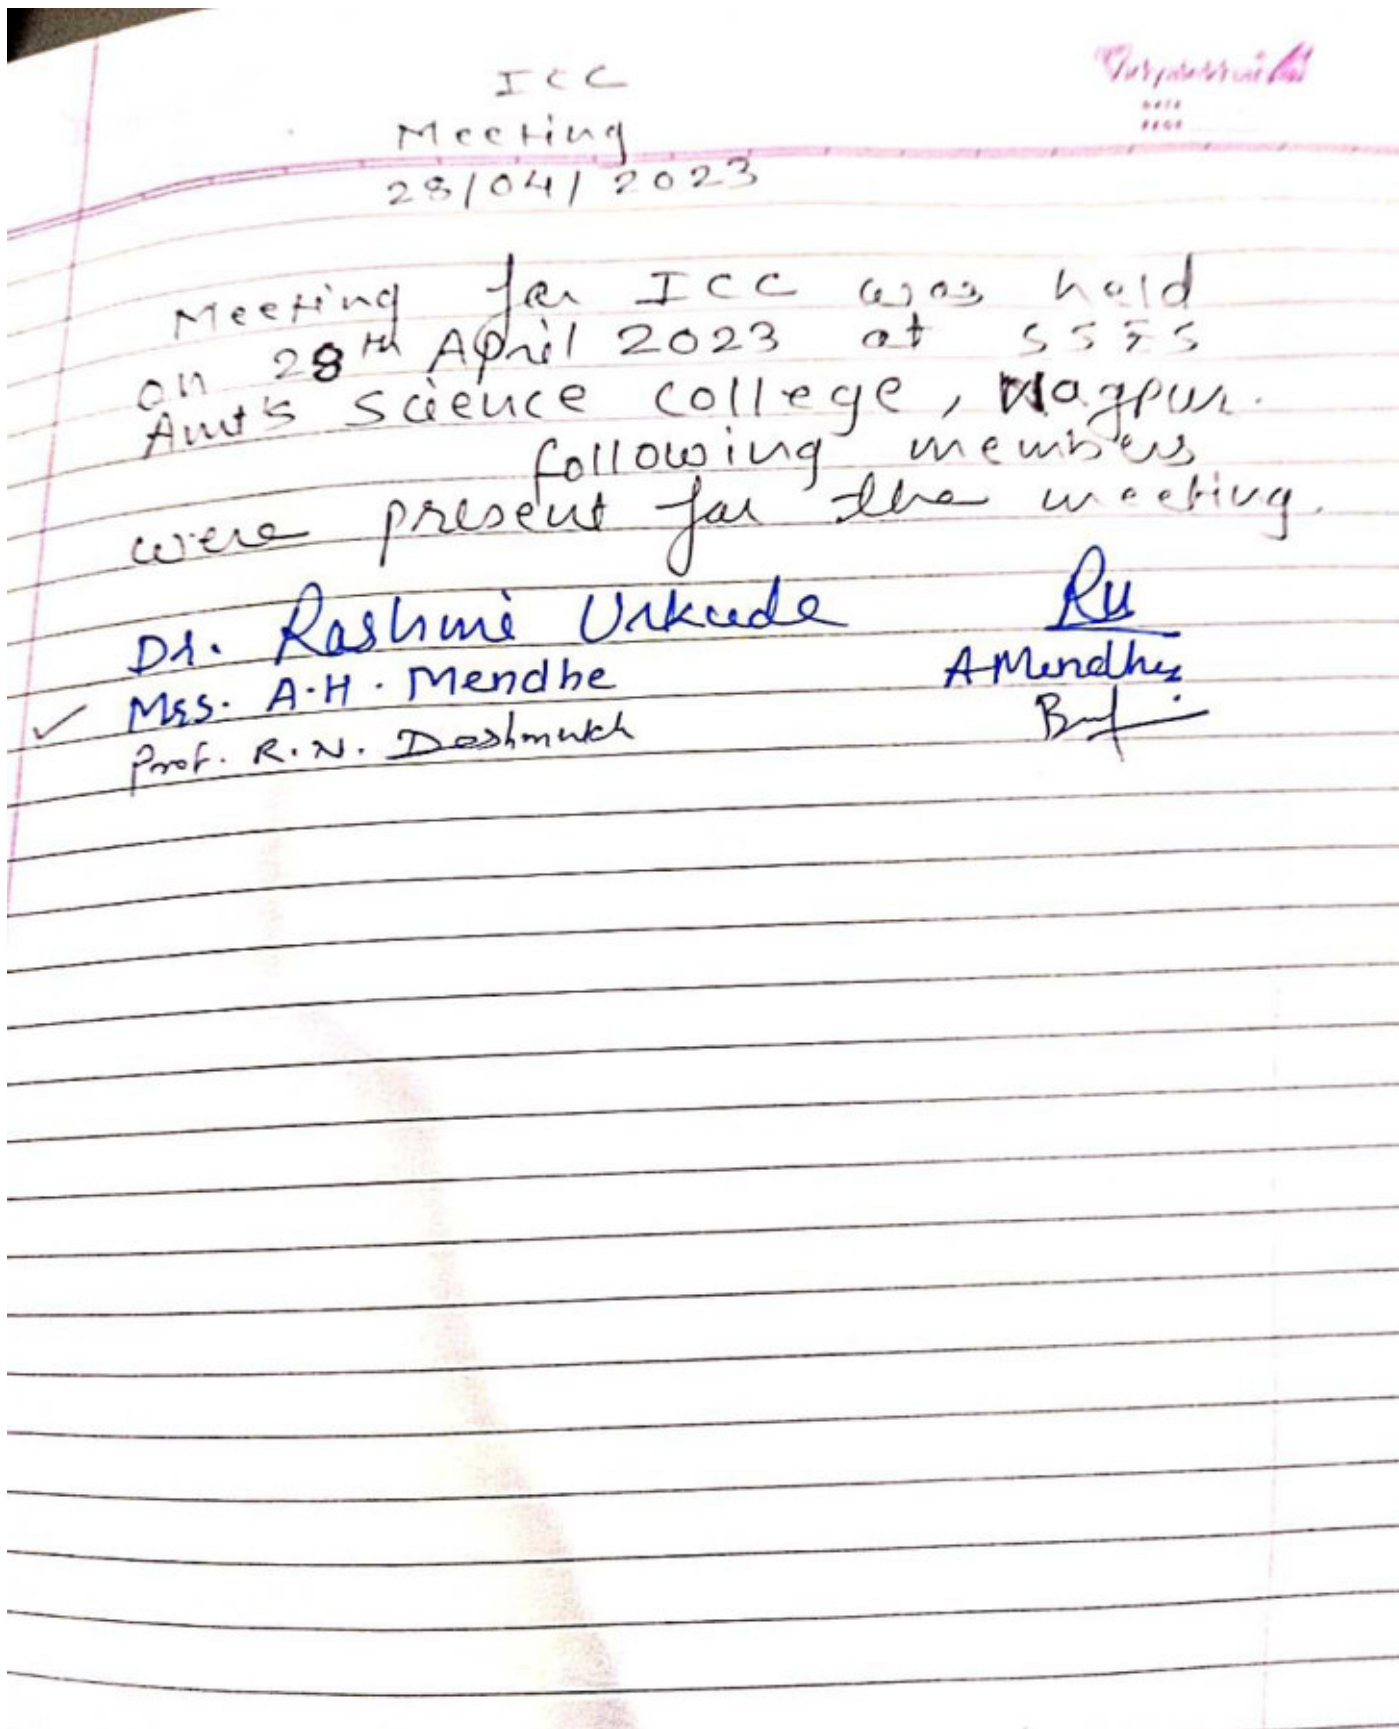 ICC
Meeting
28/04/2023
DATE
PAGE
Meeting for ICC was held
on 28th April 2023 at SSES
Amt's Science college, Nagpur.
following members
were present for the meeting.
Dr. Rashmi Urkude Ru
✓ Mrs. A.H. Mendhe A Mendhe
Prof. R.N. Deshmukh